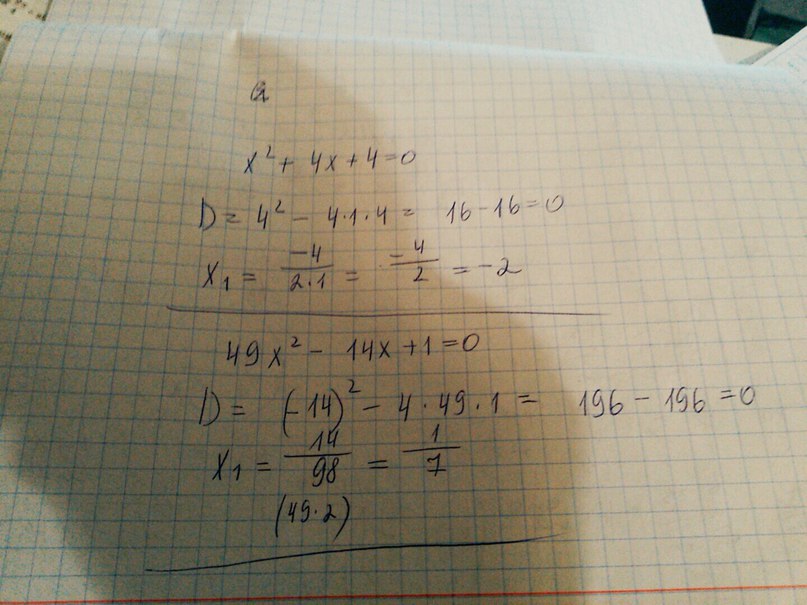 x² + 4x + 4 = 0
D = 4² - 4·1·4 = 16 - 16 = 0
x₁ = -4/2·1 = -4/2 = -2
49x² - 14x + 1 = 0
D = (-14)² - 4·49·1 = 196 - 196 = 0
x₁ = 14/98 = 1/7
(49·2)